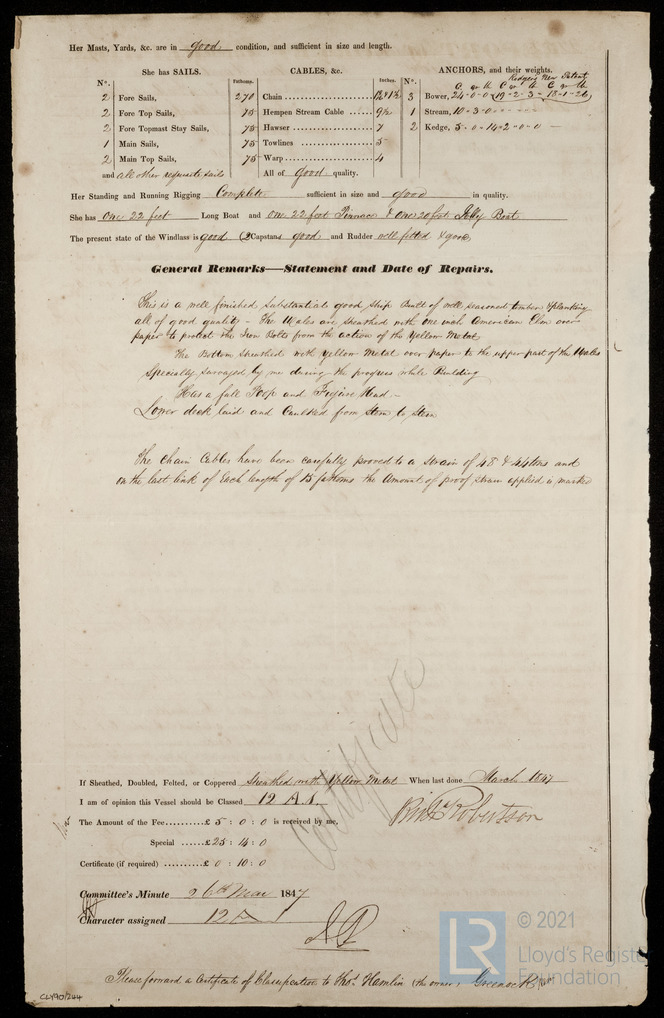 Her Masts, Yards, &c. are in good condition, and sufficient in size and length.
She has SAILS.
CABLES, &c.
ANCHORS, and their weights.
Nº.
Fathoms.
Inches.
Nº.
2 Fore Sails,
2 Fore Top Sails,
2 Fore Topmast Stay Sails,
1 Main Sails,
2 Main Top Sails,
and all other requisite sails
270 Chain
75 Hempen Stream Cable 9½
75 Hawser 7
75 Towlines 5
75 Warp 4
All of good quality.
3 Bower, 24-0-0 (19-2-3 - 18-1-26)
1 Stream, 10-3-0
2 Kedge, 5-0-14-2-0-0
Her Standing and Running Rigging Complete sufficient in size and good in quality.
She has One 22 feet Long Boat and one 22 feet Pinnace & One 20 feet Jolly Boat
The present state of the Windlass is good (2 Capstans good and Rudder well fitted & good
General Remarks—Statement and Date of Repairs.
This is a well finished Substantial good Ship Built of well seasoned timber & planking
all of good quality - The Wales are Sheathed with one inch American Elm over
paper to protect the Iron Bolts from the action of the Yellow Metal
The Bottom Sheathed with Yellow Metal over paper to the upper part of the Wales
Specially Surveyed by me during the progress while Building
Has a full Poop and Figure Head.-
Lower deck laid and Caulked from Stem to Stern
The Chain Cables have been carefully proved to a strain of 48 & 44 tons and
on the last link of Each length of 15 fathoms the Amount of proof strain applied is marked
Certificate
If Sheathed, Doubled, Felted, or Coppered Sheathed with Yellow Metal When last done March 1847
I am of opinion this Vessel should be Classed 12 A.1.
The Amount of the Fee.......£ 5 : 0 : 0 is received by me,
Robertson
Special ......£25 : 14 : 0
Certificate (if required) ......£ 0 : 10 : 0
Committee's Minute 26th Mar 1847
Character assigned 12 A
Please forward a Certificate of Classification to Thos. Hamlin (the owner) Greenock
CLY90/244
LR
© 2021
Lloyd's Register
Foundation